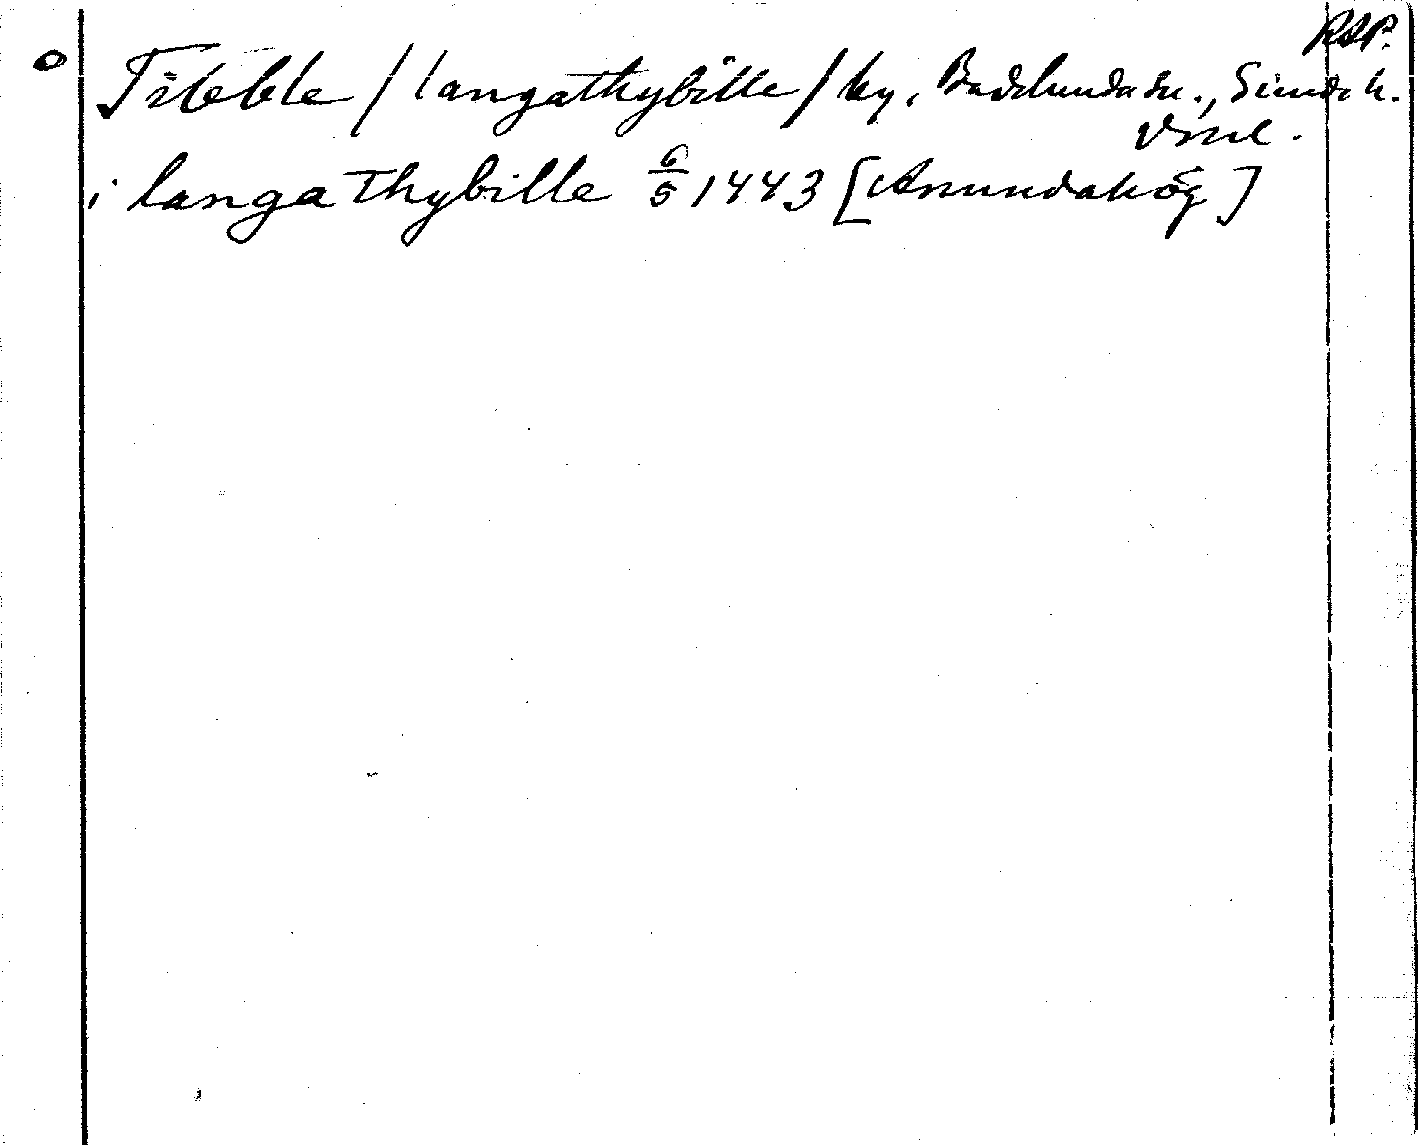 RAP.
Tibble / langathybille / by, Badelunda sn., Siende h.
Vsml.
i langa Thybille 6/5 1443 [Anundahög]